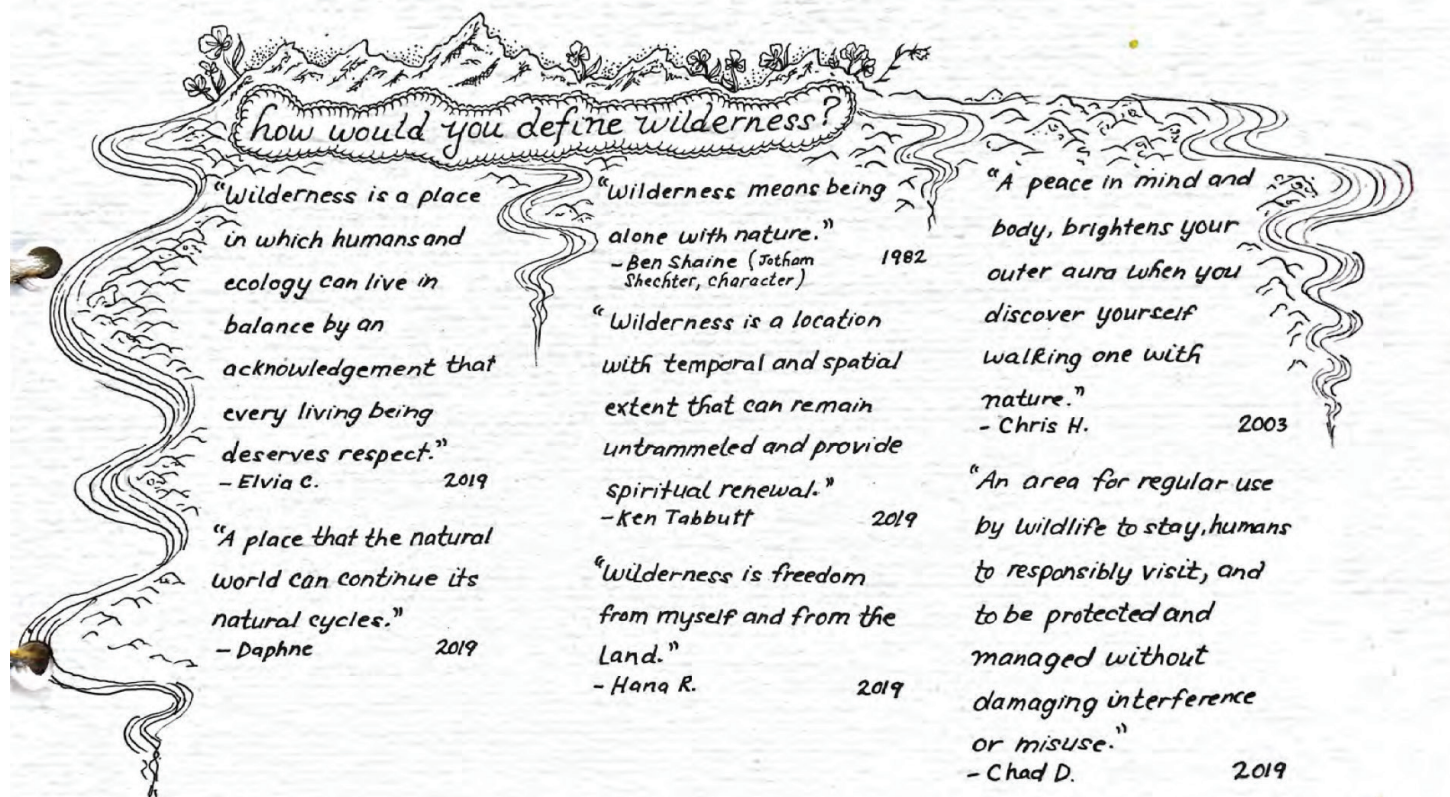 how would you define wilderness?
"Wilderness is a place
in which humans and
ecology can live in
balance by an
acknowledgement that
every living being
deserves respect."
- Elvia C. 2019
"A place that the natural
world can continue its
natural cycles."
- Daphne 2019
"Wilderness means being
alone with nature."
- Ben Shaine (Jotham 1982
Shechter, character)
"Wilderness is a location
with temporal and spatial
extent that can remain
untrammeled and provide
spiritual renewal."
- Ken Tabbutt 2019
"Wilderness is freedom
from myself and from the
Land."
- Hana R. 2019
"A peace in mind and
body, brightens your
outer aura when you
discover yourself
walking one with
nature."
- Chris H. 2003
"An area for regular use
by wildlife to stay, humans
to responsibly visit, and
to be protected and
managed without
damaging interference
or misuse."
- Chad D. 2019